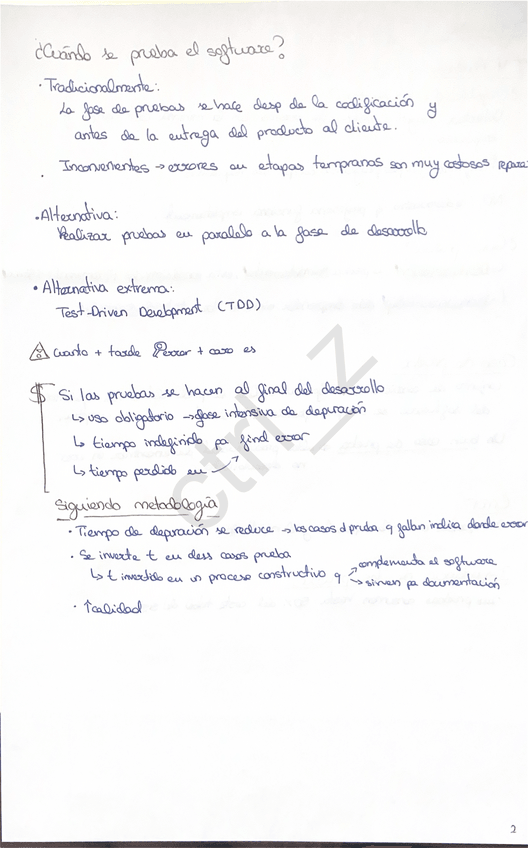 ¿Cuándo se prueba el software?
· Tradicionalmente:
La fase de pruebas se hace desp de la codificación y
antes de la entrega del producto al cliente.
Inconvenientes → errores en etapas tempranas son muy costosos repara
· Alternativa:
Realizar pruebas en paralelo a la fase de desarrollo
· Alternativa extrema:
Test-Driven Development (TDD)
cuanto + tarde error + caro es
$ Si las pruebas se hacen al final del desarrollo
↳ uso obligatorio → fase intensiva de depuración
↳ tiempo indefinido pa find error
↳ tiempo perdido en
Siguiendo metodología
· Tiempo de depuración se reduce → los casos d prueba q fallan indica donde error
· Se invierte t en casos prueba
↳ t invertido en un proceso constructivo q → complementa el software
→ sirven pa documentación
· ↑calidad
ctrl_Z
2